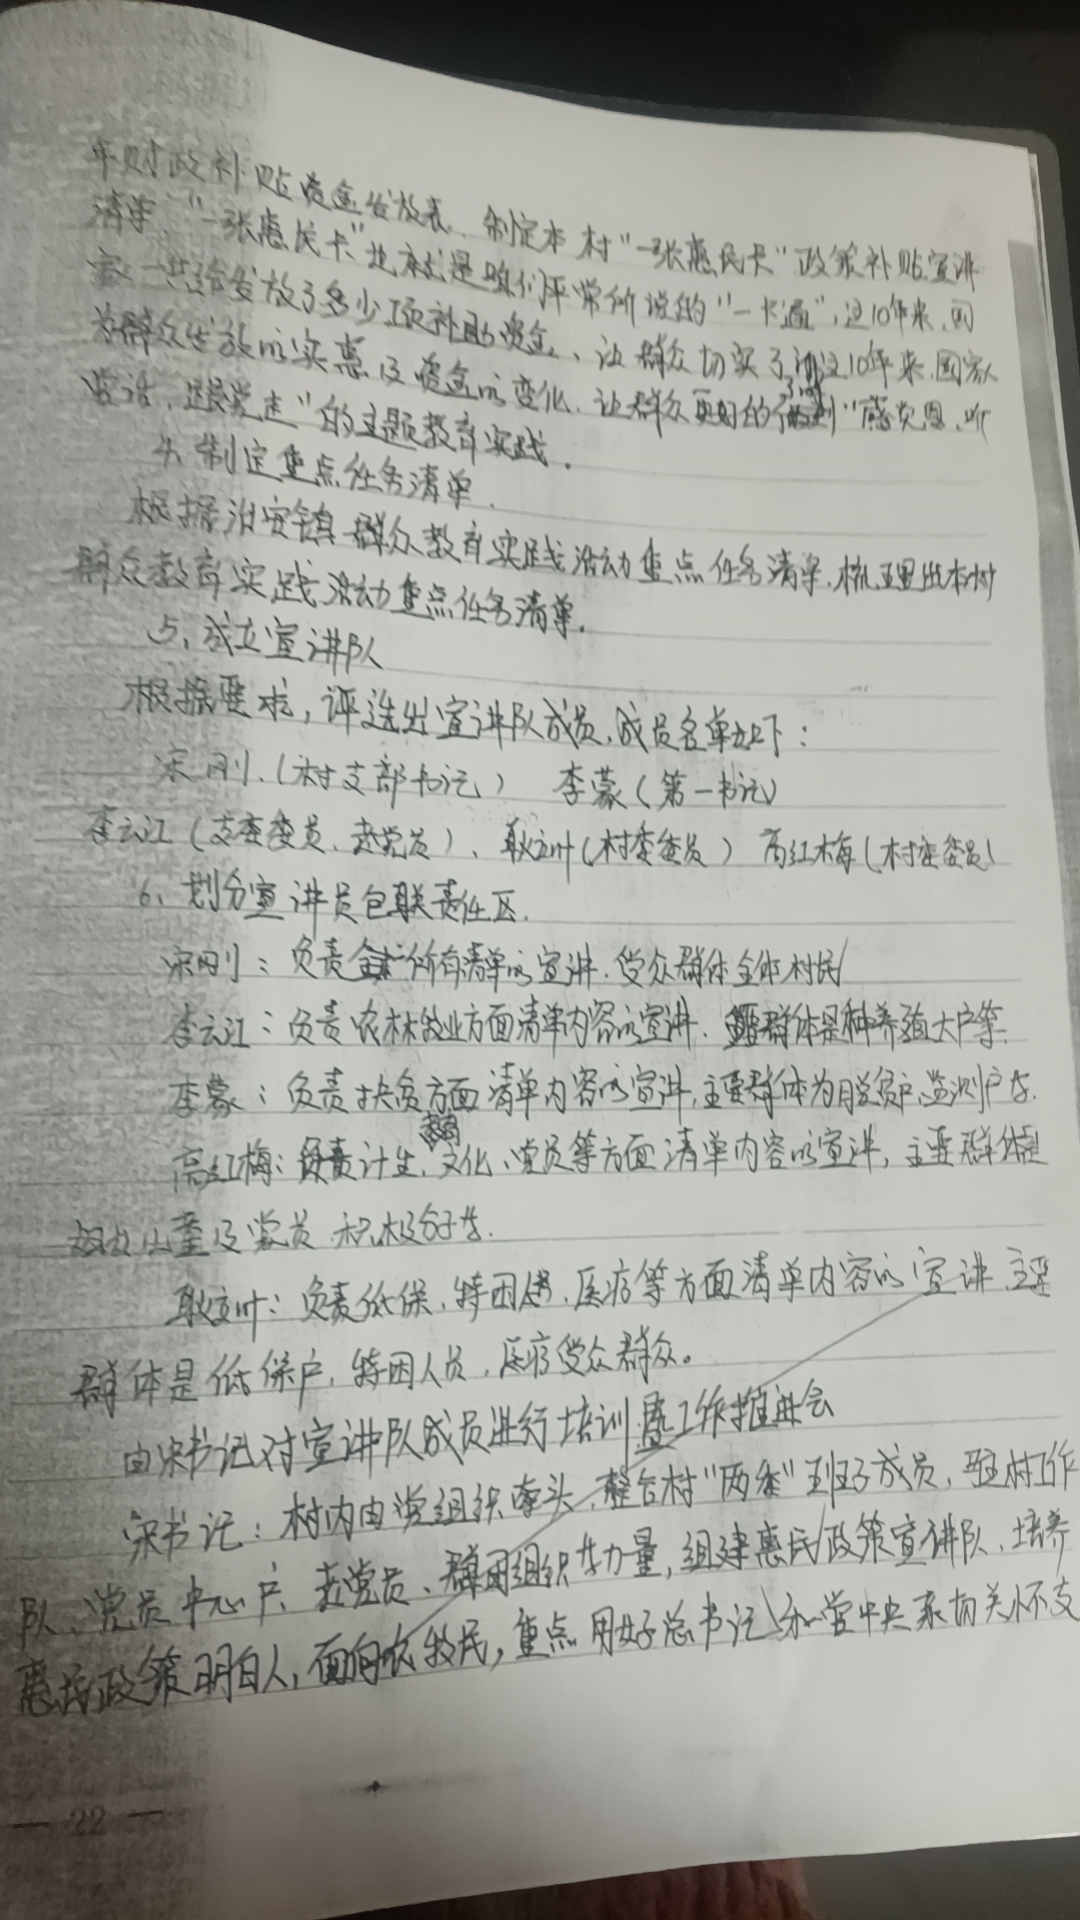 年财政补贴资金发放表,制定本村“一张惠民卡”政策补贴宣讲
清单,“一张惠民卡”也就是咱们平常所说的“一卡通”,这10年来,国
家一共给发放了多少项补助资金、让群众切实了解这10年来国家
为群众发放的实惠及资金的变化,让群众更好的做到“感党恩、听
党话、跟党走”的主题教育实践。
4、制定重点任务清单.
根据治安镇群众教育实践活动重点任务清单,梳理出本村
群众教育实践活动重点任务清单.
5、成立宣讲队
根据要求,评选出宣讲队成员,成员名单如下:
宋刚(村支部书记) 李蒙(第一书记)
李云江(支委委员、老党员)、耿立叶(村委委员) 高红梅(村委委员)
6、划分宣讲员包联责任区.
宋刚:负责所有清单的宣讲.受众群体全体村民
李云江:负责农林牧业方面清单内容的宣讲.群体是种养殖大户等.
李蒙:负责扶贫方面清单内容的宣讲,主要群体为脱贫户、监测户等.
高红梅:负责计生、文化、党员等方面清单内容的宣讲,主要群体是
妇女儿童及党员、积极分子等.
耿立叶:负责低保、特困、医疗等方面清单内容的宣讲、主要
群体是低保户,特困人员,医疗受众群众。
由宋书记对宣讲队成员进行培训工作推进会
宋书记:村内由党组织牵头,整合村“两委”班子成员,驻村工作
队、党员中心户、老党员、群团组织等力量,组建惠民政策宣讲队、培养
惠民政策明白人,面向农牧民,重点用好总书记和党中央亲切关怀支
— 22 —